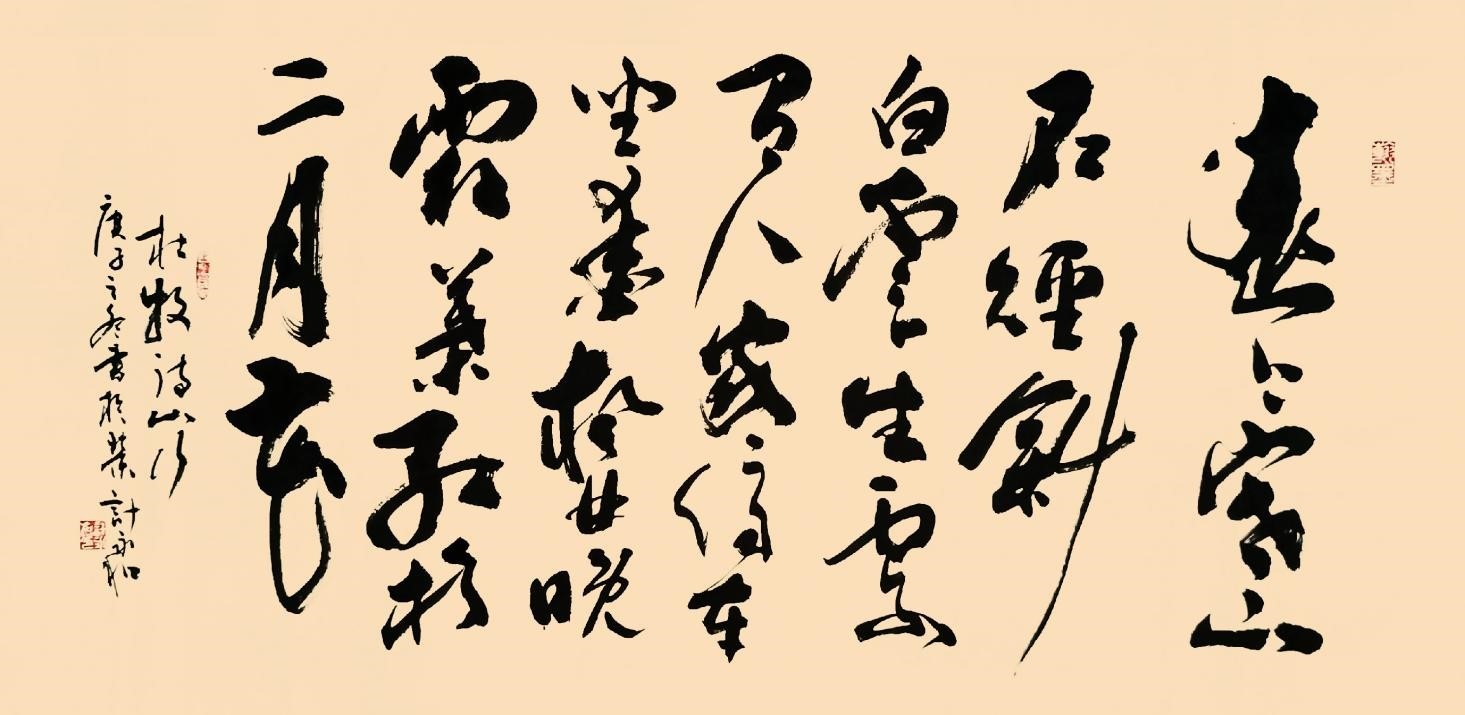 遠上寒山
石徑斜
白雲生處
有人家停車
坐愛楓林晚
霜葉紅於
二月花
杜牧詩山行
庚子之冬書於 計永和